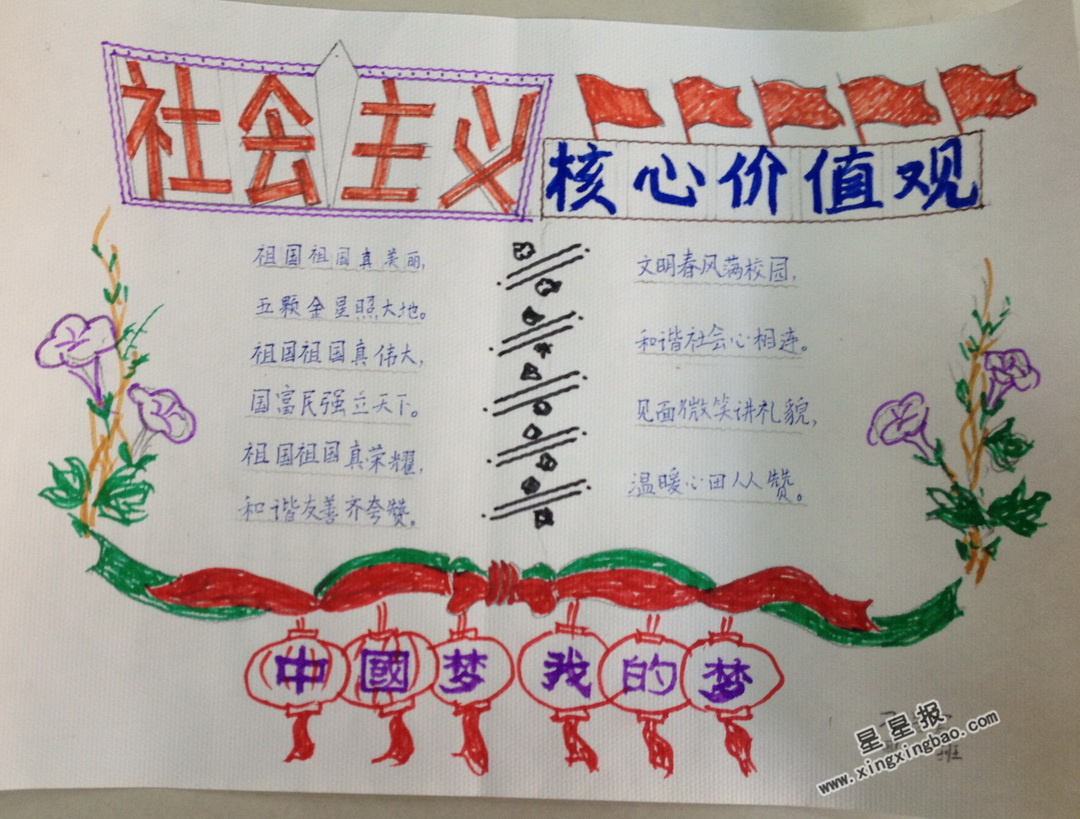 社会主义
核心价值观
祖国祖国真美丽,
五颗金星照大地。
祖国祖国真伟大,
国富民强立天下。
祖国祖国真荣耀,
和谐友善齐夸赞。
文明春风满校园,
和谐社会心相连。
见面微笑讲礼貌,
温暖心田人人赞。
中國梦我的梦
班
星星报
www.xingxingbao.com